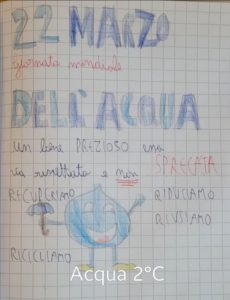 22 MARZO
giornata mondiale
DELL'ACQUA
un bene PREZIOSO che
va rispettato e non SPRECATA
RECUPERIAMO RIDUCIAMO
RIUSIAMO
RICICLIAMO
Acqua 2°C